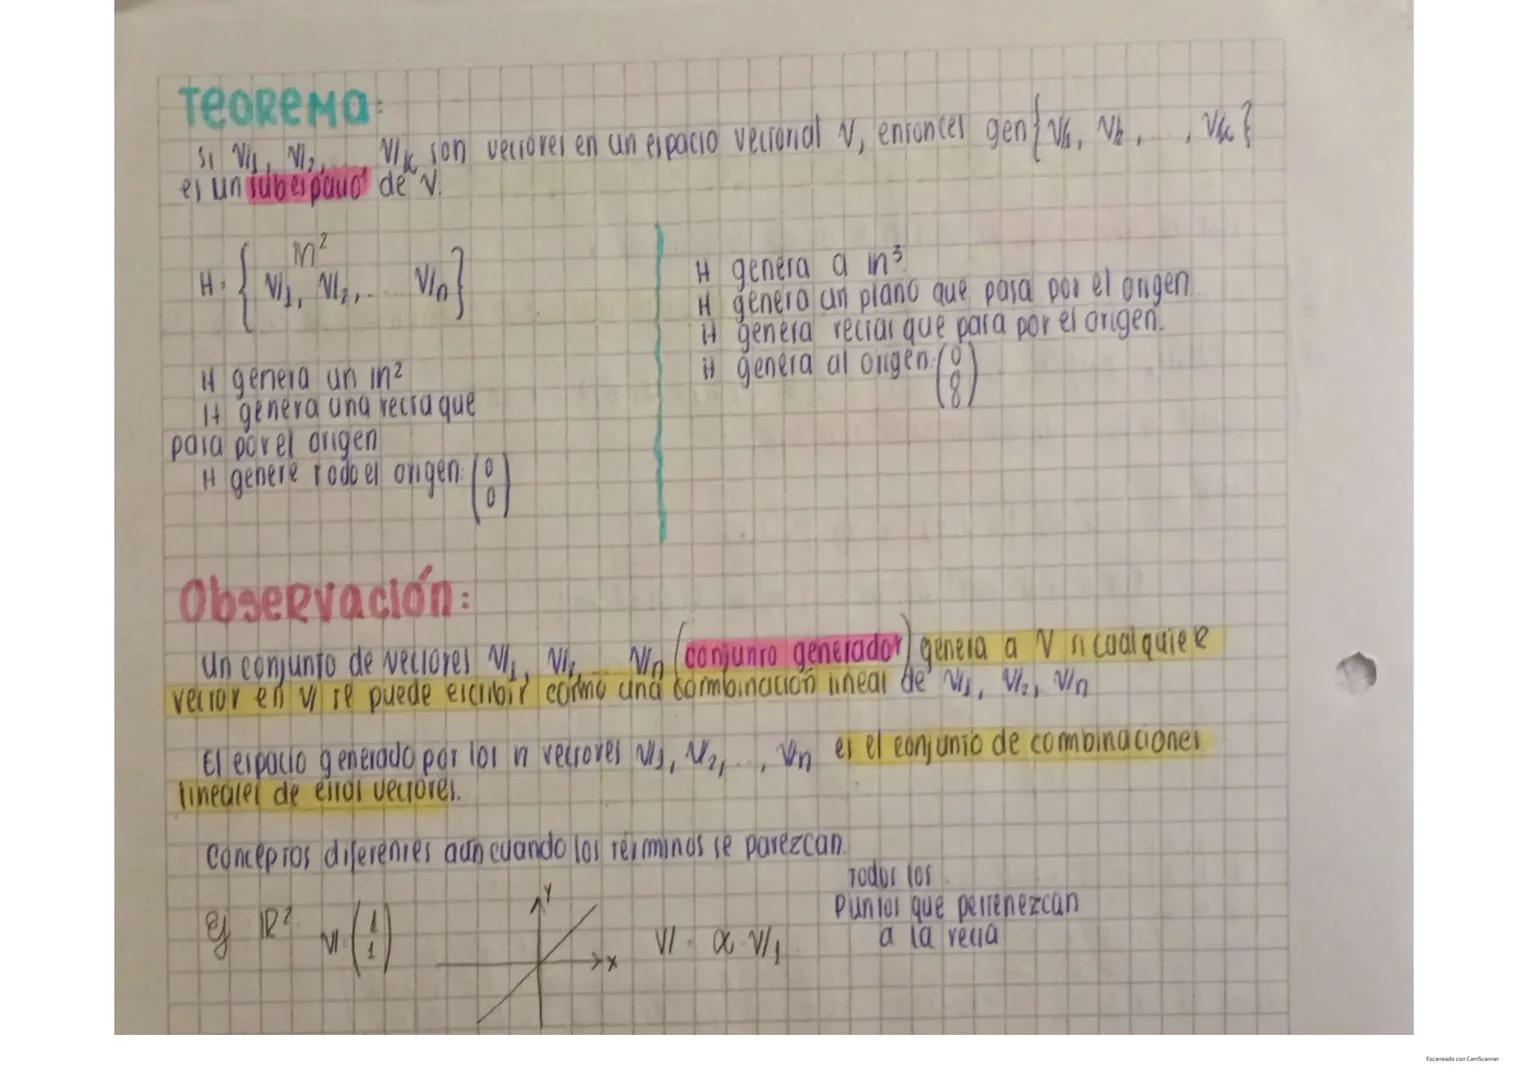 Teorema:
Si V1, V2, ... Vk son vectores en un espacio vectorial V, entonces gen{V1, V2, ..., Vk}
es un subespacio de V.
H = { V1, V2, ... Vn}
H genera a in³
H genera un plano que pasa por el origen
H genera rectas que pasa por el origen.
H genera al origen (0 0 0)
H genera un in²
H genera una recta que
pasa por el origen
H genere todo el origen (0 0)
Observación:
Un conjunto de vectores V1, V2 ... Vn (conjunto generador) genera a V si cualquier
vector en V se puede escribir como una combinación lineal de V1, V2, Vn
El espacio generado por los n vectores V1, V2, ..., Vn es el conjunto de combinaciones
lineales de estos vectores.
Conceptos diferentes aun cuando los términos se parezcan.
Todos los
Puntos que pertenezcan
a la recta
ej IR² V1 = (1 1) y x V = α V1
Escaneado con CamScanner